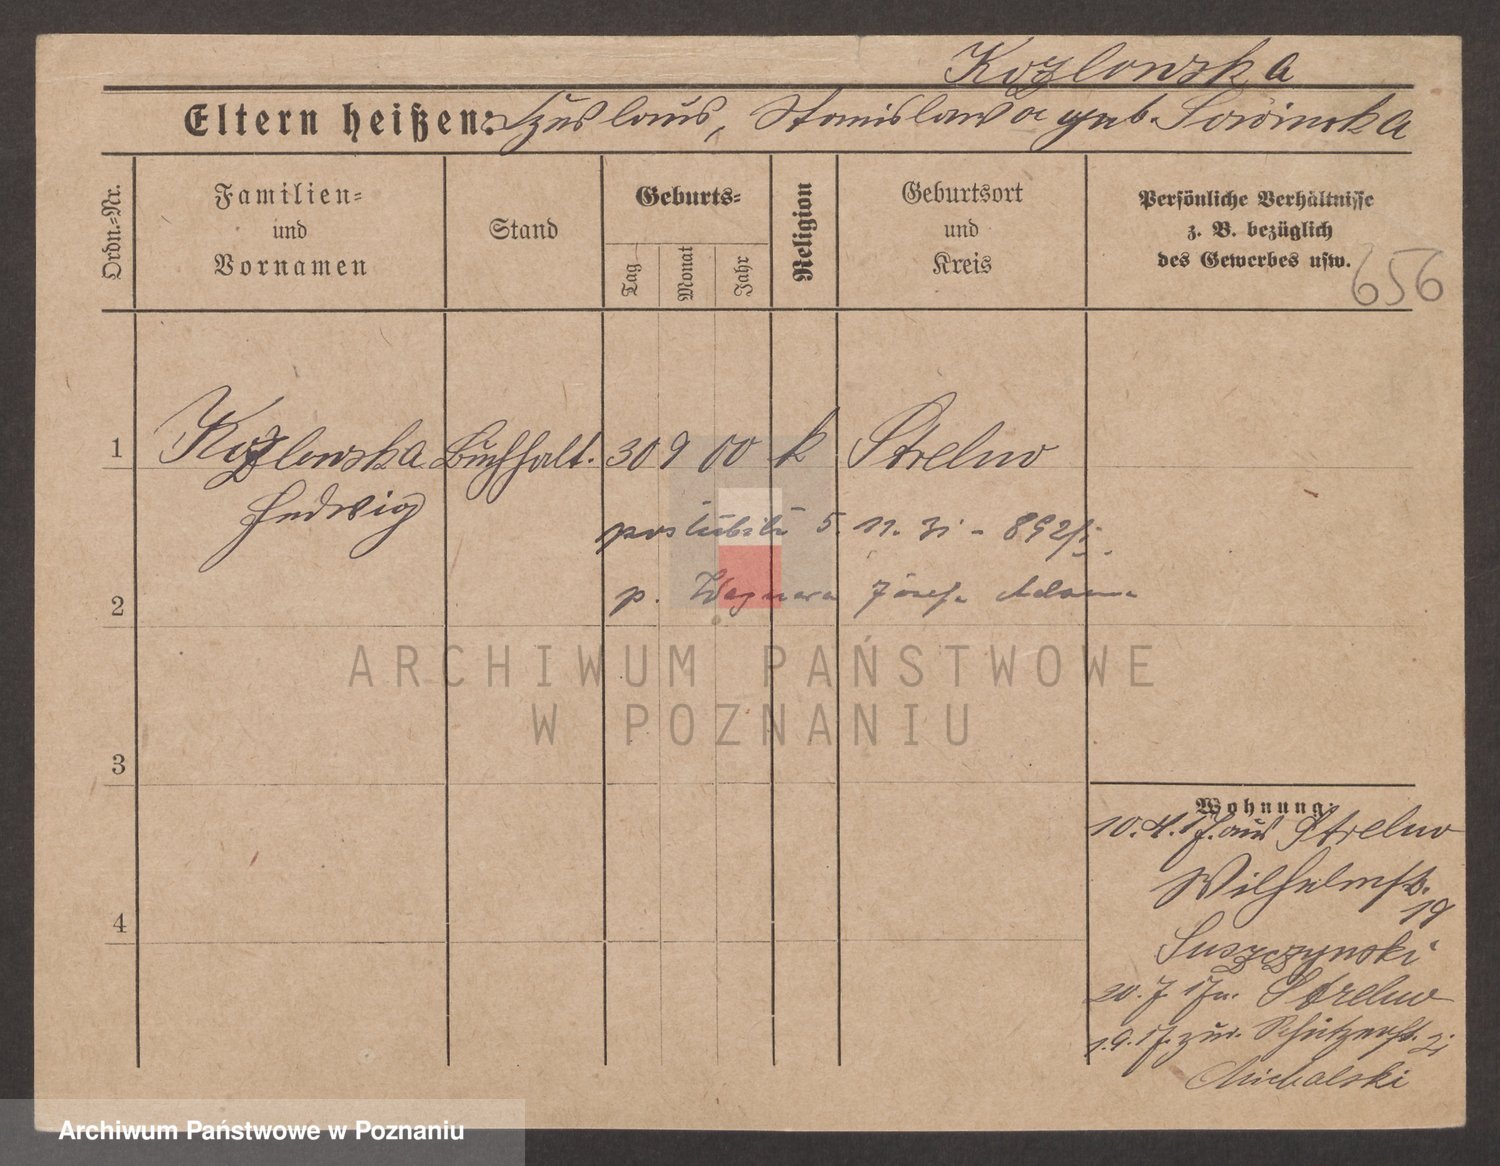 Kozlowska
Eltern heißen: Czeslaus, Stanislawa geb. Sowinska
Ordn.-Nr.
Familien-
und
Vornamen
Stand
Geburts-
Tag
Monat
Jahr
Religion
Geburtsort
und
Kreis
Persönliche Verhältnisse
z. B. bezüglich
des Gewerbes usw.
656
1 Kozlowska Buchhalt. 30 9 00 k Strelno
Hedwig
poslubiła 5. 11. 31 - 892/
p. Wagnera Józefa Adama
2
ARCHIWUM PAŃSTWOWE
W POZNANIU
3
4
Wohnung:
10. 4. 17. aus Strelno
Wilhelmstr.
18
Suszczynski
20. 7. 17 n. Strelno
1. 9. 17. zur. Schützenstr. 31
Michalski
Archiwum Państwowe w Poznaniu